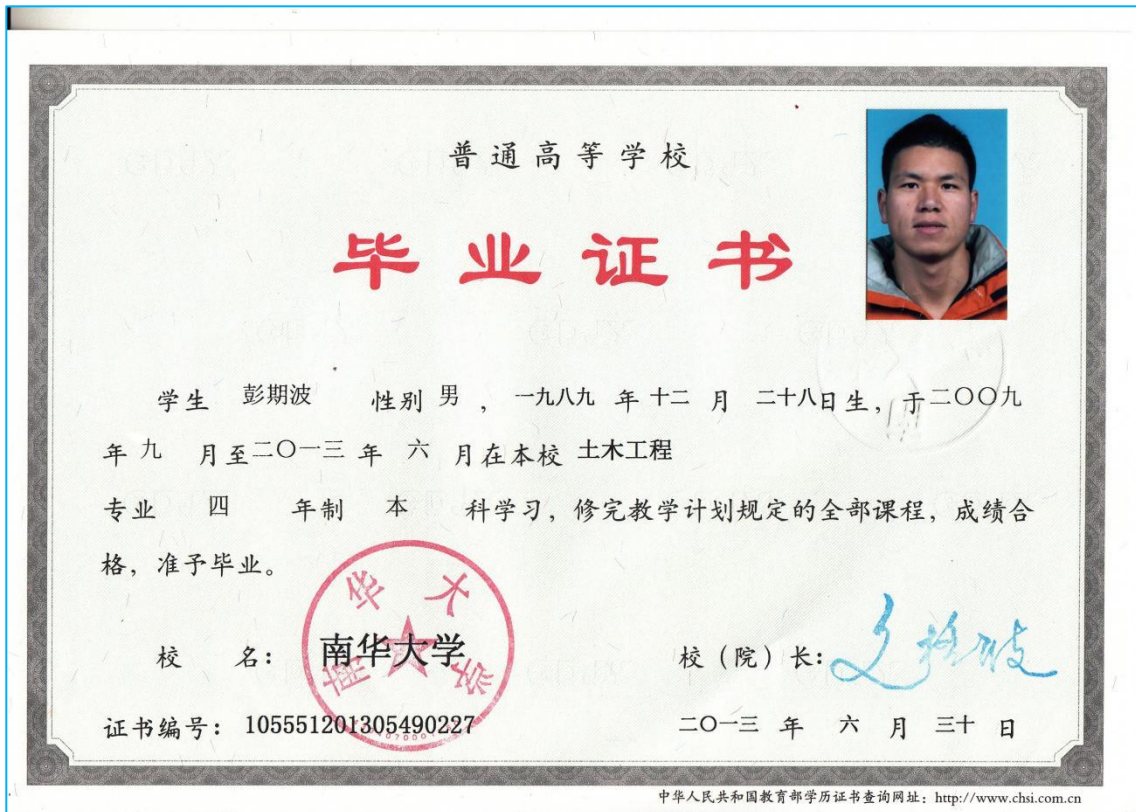 普通高等学校
毕业证书
学生 彭期波 性别 男 , 一九八九 年 十二 月 二十八日生, 于二〇〇九
年 九 月至二〇一三 年 六 月在本校 土木工程
专业 四 年制 本 科学习, 修完教学计划规定的全部课程, 成绩合
格, 准予毕业。
校 名: 南华大学
南华大学
校(院)长:
证书编号: 105551201305490227
二〇一三 年 六 月 三十 日
中华人民共和国教育部学历证书查询网址: http://www.chsi.com.cn